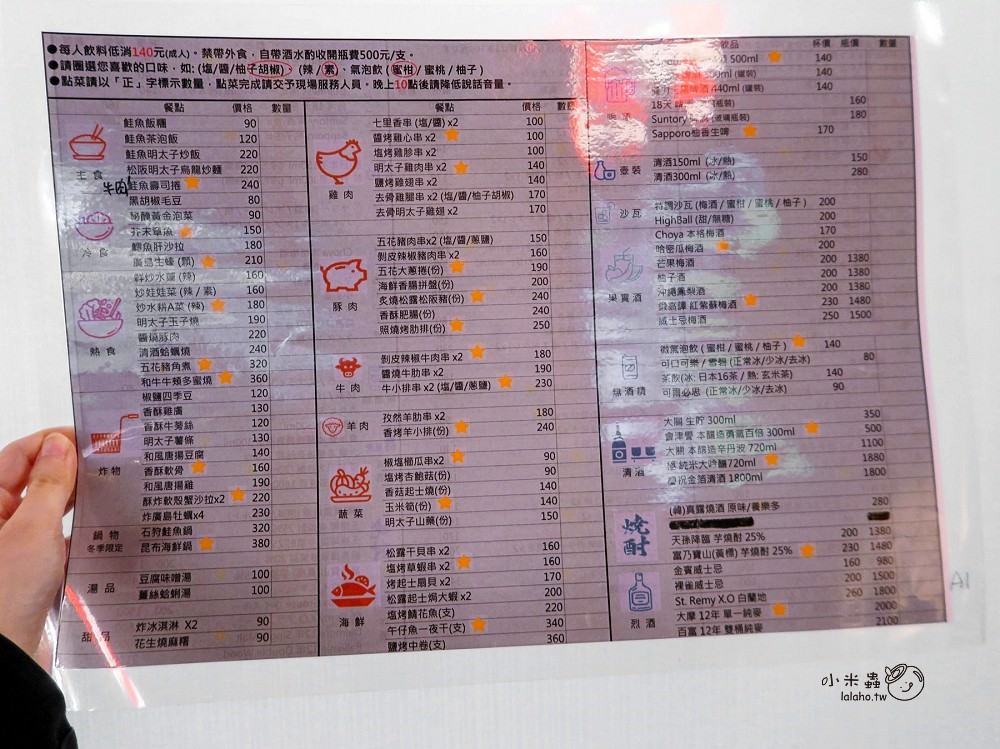 ●每人飲料低消140元(成人)。禁帶外食，自帶酒水酌收開瓶費500元/支。
●請圈選您喜歡的口味，如: (塩/醬/柚子胡椒)、(辣/素)、氣泡飲 (蜜柑/蜜桃/柚子)
●點菜請以「正」字標示數量，點菜完成請交予現場服務人員。晚上10點後請降低說話音量。
餐點 價格 數量
主食
鮭魚飯糰 90
鮭魚茶泡飯 120
鮭魚明太子炒飯 220
松阪明太子烏龍炒麵 220
牛肉
鮭魚壽司捲 240
冷食
黑胡椒毛豆 80
秘釀黃金泡菜 90
芥末章魚 150
鱈魚肝沙拉 180
廣島生蠔 (顆) 210
熱食
鮮炒水蓮 (辣) 160
炒娃娃菜 (辣 / 素) 160
炒水耕A菜 (辣) 180
明太子玉子燒 190
醬燒豚肉 220
清酒蛤蠣燒 240
五花豬角煮 320
和牛牛頰多蜜燒 360
炸物
椒鹽四季豆 120
香酥雞膚 130
香酥牛蒡絲 120
明太子薯條 130
和風唐揚豆腐 140
香酥軟骨 160
和風唐揚雞 190
酥炸軟殼蟹沙拉x2 220
炸廣島牡蠣x4 230
鍋物
冬季限定
石狩鮭魚鍋 320
昆布海鮮鍋 380
湯品
豆腐味噌湯 100
薑絲蛤蜊湯 100
甜品
炸冰淇淋 X2 90
花生燒麻糬 90
餐點 價格 數量
雞肉
七里香串 (塩/醬) x2 100
醬烤雞心串 x2 100
塩烤雞胗串 x2 100
明太子雞肉串 x2 140
鹽烤雞翅串 x2 140
去骨雞腿串 x2 (塩/醬/柚子胡椒) 170
去骨明太子雞翅 x2 170
豚肉
五花豬肉串x2 (塩/醬/蔥鹽) 150
剝皮辣椒豬肉串 x2 160
五花大蔥捲(份) 190
海鮮香腸拼盤(份) 200
炙燒松露松阪豬(份) 240
香酥肥腸(份) 240
照燒烤肋排(份) 250
牛肉
剝皮辣椒牛肉串 x2 180
醬燒牛肋串 x2 190
牛小排串 x2 (塩/醬/蔥鹽) 230
羊肉
孜然羊肋串 x2 180
香烤羊小排(份) 240
蔬菜
椒塩櫛瓜串x2 90
塩烤杏鮑菇(份) 90
香菇起士燒(份) 140
玉米筍(份) 140
明太子山藥(份) 150
海鮮
松露干貝串 x2 160
塩烤草蝦串 x2 160
烤起士扇貝 x2 170
松露起士焗大蝦 x2 200
塩烤鯖花魚(支) 220
午仔魚一夜干(支) 340
鹽烤中卷(支) 360
飲品 杯價 瓶價 數量
500ml 140
(罐裝) 140
440ml (罐裝) 140
18天 (瓶裝) 160
Suntory (玻璃瓶裝) 180
Sapporo柚香生啤 170
壺裝
清酒150ml (冰/熱) 150
清酒300ml (冰/熱) 280
沙瓦
特調沙瓦 (梅酒 / 蜜柑 / 蜜桃 / 柚子) 200
HighBall (甜/無糖) 200
果實酒
Choya 本格梅酒 170
哈密瓜梅酒 200
芒果梅酒 200 1380
柚子酒 200 1380
沖繩鳳梨酒 200 1380
鍛高譚 紅紫蘇梅酒 230 1480
威士忌梅酒 250 1500
微醺泡飲 (蜜柑 / 蜜桃 / 柚子) 140
可口可樂 / 雪碧 (正常冰/少冰/去冰) 80
茶飲(冰: 日本16茶 / 熱: 玄米茶) 140
可爾必思 (正常冰/少冰/去冰) 90
清酒
大關 生貯 300ml 350
會津譽 本釀造勇氣百倍 300ml 500
大關 本釀造辛丹波 720ml 1100
純米大吟釀720ml 1880
慶祝金箔清酒 1800ml 1800
燒酎
(韓)真露燒酒 原味/養樂多 280
天孫降臨 芋燒酎 25% 200 1380
富乃寶山(黃標) 芋燒酎 25% 230 1480
烈酒
金賓威士忌 160 980
裸雀威士忌 200 1500
St. Remy X.O 白蘭地 260 1800
大摩 12年 單一純麥 2000
百富 12年 雙桶純麥 2100
A1
小米蟲
lalaho.tw